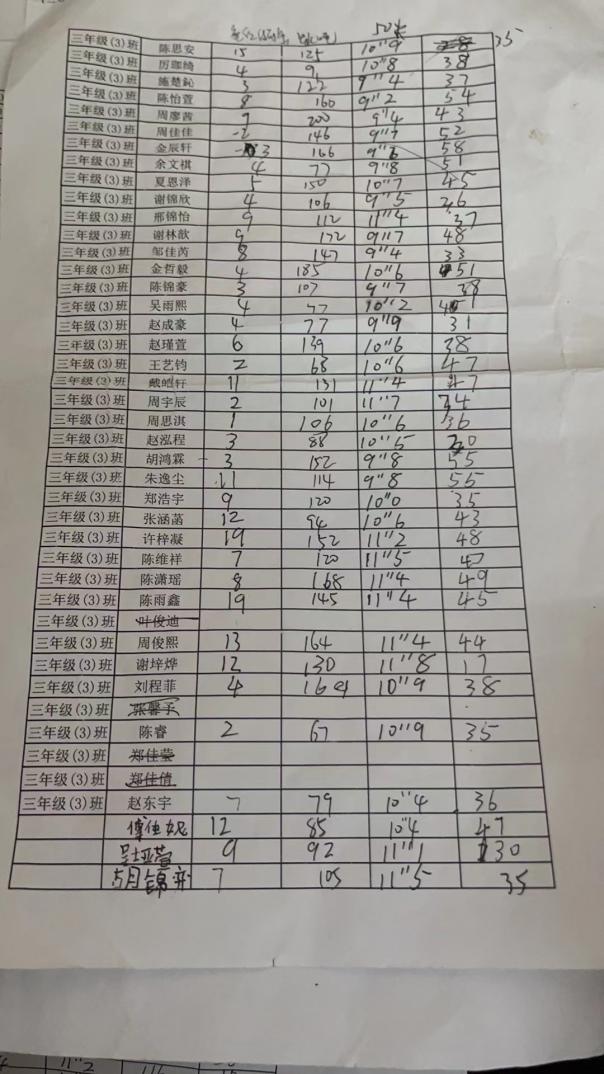 50米
三年级(3)班 陈思安 15 125 10"9 35
三年级(3)班 厉珈绮 4 9 10"8 38
三年级(3)班 施楚鈊 3 122 9"4 37
三年级(3)班 陈怡萱 8 160 9"2 54
三年级(3)班 周廖茜 9 200 9"4 43
三年级(3)班 周佳佳 -2 146 9"7 52
三年级(3)班 金辰轩 3 166 58
三年级(3)班 余文祺 4 77 9"8 51
三年级(3)班 夏恩泽 150 10"7 45
三年级(3)班 谢锦欣 4 106 9"5 26
三年级(3)班 邢锦怡 9 112 11"4 37
三年级(3)班 谢林歆 9 172 9"7 48
三年级(3)班 邹佳芮 8 147 9"4 33
三年级(3)班 金哲毅 4 185 10"6 51
三年级(3)班 陈锦豪 3 107 9"7 38
三年级(3)班 吴雨熙 4 77 10"2
三年级(3)班 赵成豪 4 77 9"9 31
三年级(3)班 赵瑾萱 6 139 10"6 38
三年级(3)班 王艺钧 2 68 10"6 47
三年级(3)班 戴皚轩 11 131 11"4 47
三年级(3)班 周宇辰 2 101 11"7 34
三年级(3)班 周思淇 1 106 10"6 36
三年级(3)班 赵泓程 3 88 10"5 20
三年级(3)班 胡鸿霖 -3 152 9"8 55
三年级(3)班 朱逸尘 11 114 9"8 55
三年级(3)班 郑浩宇 9 120 10"0 35
三年级(3)班 张涵菡 12 94 10"6 43
三年级(3)班 许梓凝 19 152 11"2 48
三年级(3)班 陈维祥 7 120 11"5 47
三年级(3)班 陈潇瑶 8 168 11"4 49
三年级(3)班 陈雨鑫 19 145 11"4 45
三年级(3)班 叶俊迪
三年级(3)班 周俊熙 13 164 11"4 44
三年级(3)班 谢垶烨 12 130 11"8 17
三年级(3)班 刘程菲 4 169 10"9 38
三年级(3)班
三年级(3)班 陈睿 2 67 10"9 35
三年级(3)班 郑佳莹
三年级(3)班 郑佳倩
三年级(3)班 赵东宇 7 79 10"4 36
傅佳妮 12 85 10"4 47
吴亚萱 9 92 11"1 30
周锦奕 7 105 11"5 35